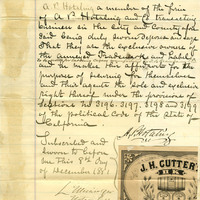 A. P. Hotaling a member of the firm
of A. P. Hotaling and Co transacting
business in the City and County of
said being duly sworn deposes and says
that they are the exclusive owners of
the annexed Trademark or Label
and he makes this affidavit for the
purpose of securing for themselves
and their agents the sole and exclusive
rights thereof under the provisions of
Sections No 3196. 3197. 3198 and 3199
of the political Code of the State of
California.
A. P. Hotaling
Subscribed and
sworn to before
me this 8th day of
December 188
J. H. CUTTER